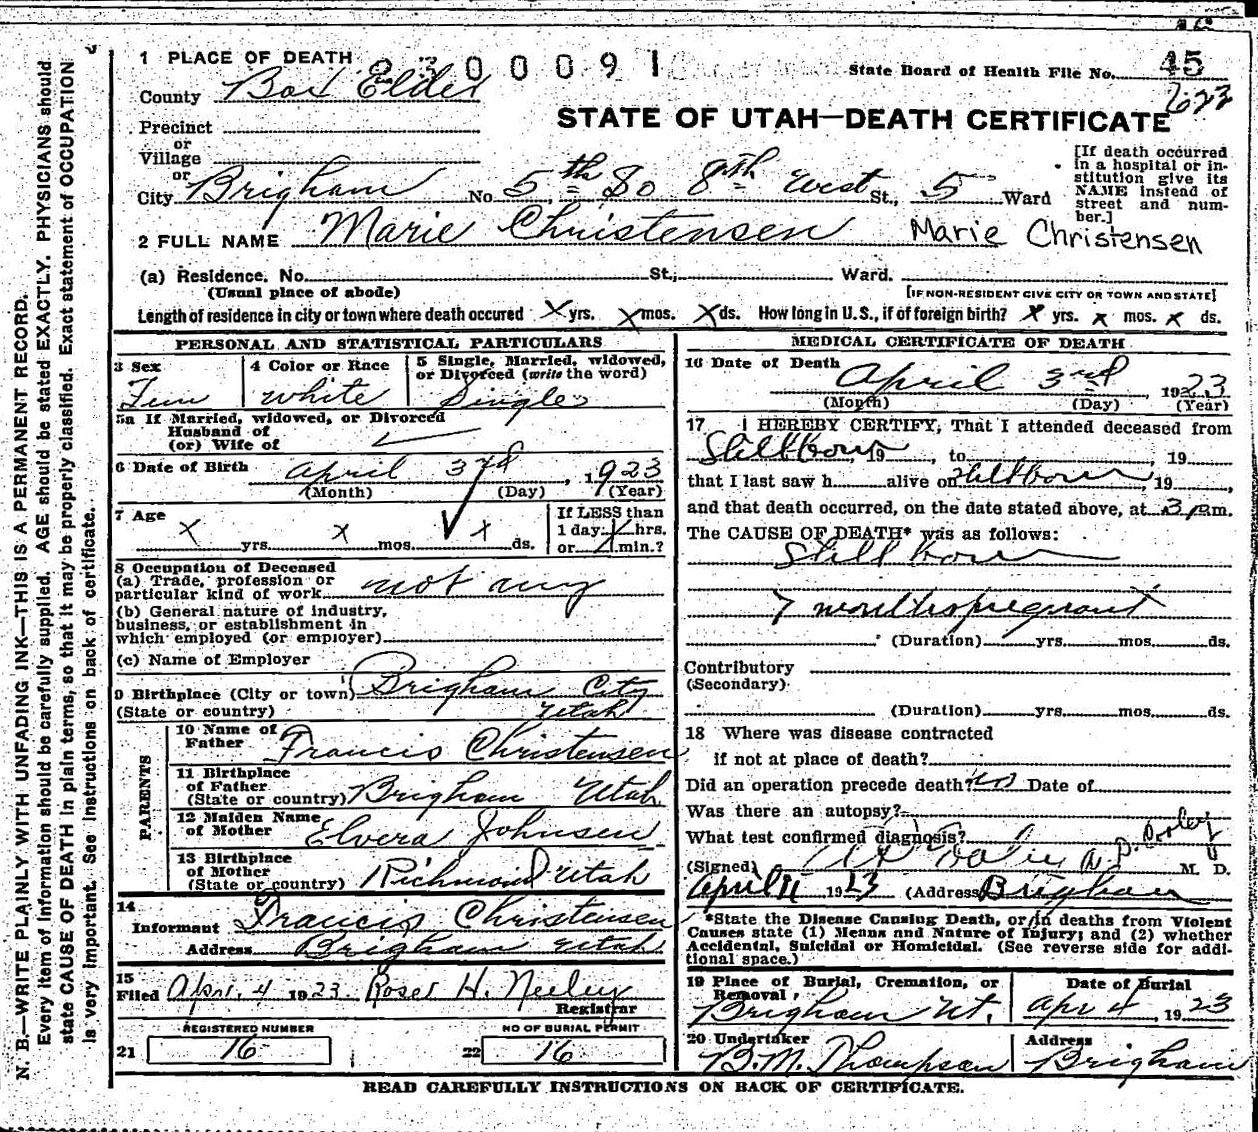 N. B.—WRITE PLAINLY WITH UNFADING INK—THIS IS A PERMANENT RECORD.
Every item of information should be carefully supplied. AGE should be stated EXACTLY. PHYSICIANS should
state CAUSE OF DEATH in plain terms, so that it may be properly classified. Exact statement of OCCUPATION
is very important. See instructions on back of certificate.
1 PLACE OF DEATH 2300091 State Board of Health File No. 45
County Box Elder 622
STATE OF UTAH—DEATH CERTIFICATE
Precinct
or
Village
or
City Brigham No. 5th So 8th West St., 5 Ward
[If death occurred
in a hospital or in-
stitution give its
NAME instead of
street and num-
ber.]
2 FULL NAME Marie Christensen Marie Christensen
(a) Residence, No. St., Ward.
(Usual place of abode) [IF NON-RESIDENT GIVE CITY OR TOWN AND STATE]
Length of residence in city or town where death occured X yrs. X mos. X ds. How long in U.S., if of foreign birth? X yrs. X mos. X ds.
PERSONAL AND STATISTICAL PARTICULARS
3 Sex 4 Color or Race 5 Single, Married, widowed,
or Divorced (write the word)
Fem white Single
5a If Married, widowed, or Divorced
Husband of
(or) Wife of
6 Date of Birth April 3rd, 1923
(Month) (Day) (Year)
7 Age If LESS than
X yrs. X mos. X ds. 1 day hrs.
or min.?
8 Occupation of Deceased
(a) Trade, profession or
particular kind of work not any
(b) General nature of industry,
business, or establishment in
which employed (or employer)
(c) Name of Employer
9 Birthplace (City or town) Brigham City
(State or country) Utah
PARENTS
10 Name of
Father Francis Christensen
11 Birthplace
of Father
(State or country) Brigham Utah
12 Maiden Name
of Mother Elvera Johnsen
13 Birthplace
of Mother
(State or country) Richmond Utah
14
Informant Francis Christensen
Address Brigham Utah
15
Filed Apr. 4 1923 H. Neeley
Registrar
REGISTERED NUMBER NO OF BURIAL PERMIT
21 16 22 16
MEDICAL CERTIFICATE OF DEATH
16 Date of Death April 3rd 1923
(Month) (Day) (Year)
17 I HEREBY CERTIFY, That I attended deceased from
Stillborn, 19 , to , 19
that I last saw h alive on Stillborn, 19 ,
and that death occurred, on the date stated above, at 3 p.m.
The CAUSE OF DEATH* was as follows:
Stillborn
7 months pregnant
(Duration) yrs. mos. ds.
Contributory
(Secondary)
(Duration) yrs. mos. ds.
18 Where was disease contracted
if not at place of death?
Did an operation precede death? no Date of
Was there an autopsy?
What test confirmed diagnosis?
(Signed) M. D.
April 1923 (Address) Brigham
*State the Disease Causing Death, or in deaths from Violent
Causes state (1) Means and Nature of Injury; and (2) whether
Accidental, Suicidal or Homicidal. (See reverse side for addi-
tional space.)
19 Place of Burial, Cremation, or Date of Burial
Removal
Brigham Ut. Apr 4, 1923
20 Undertaker Address
B. M. Thompson Brigham
READ CAREFULLY INSTRUCTIONS ON BACK OF CERTIFICATE.